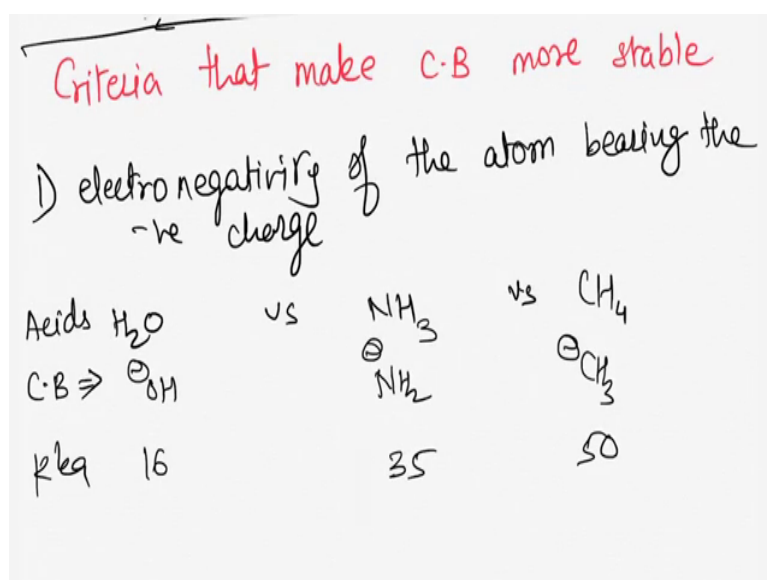 Criteria that make C.B more stable
1) electronegativity of the atom bearing the
-ve charge
Acids H₂O vs NH₃ vs CH₄
C.B ⇒ ⊖OH ⊖NH₂ ⊖CH₃
pka 16 35 50